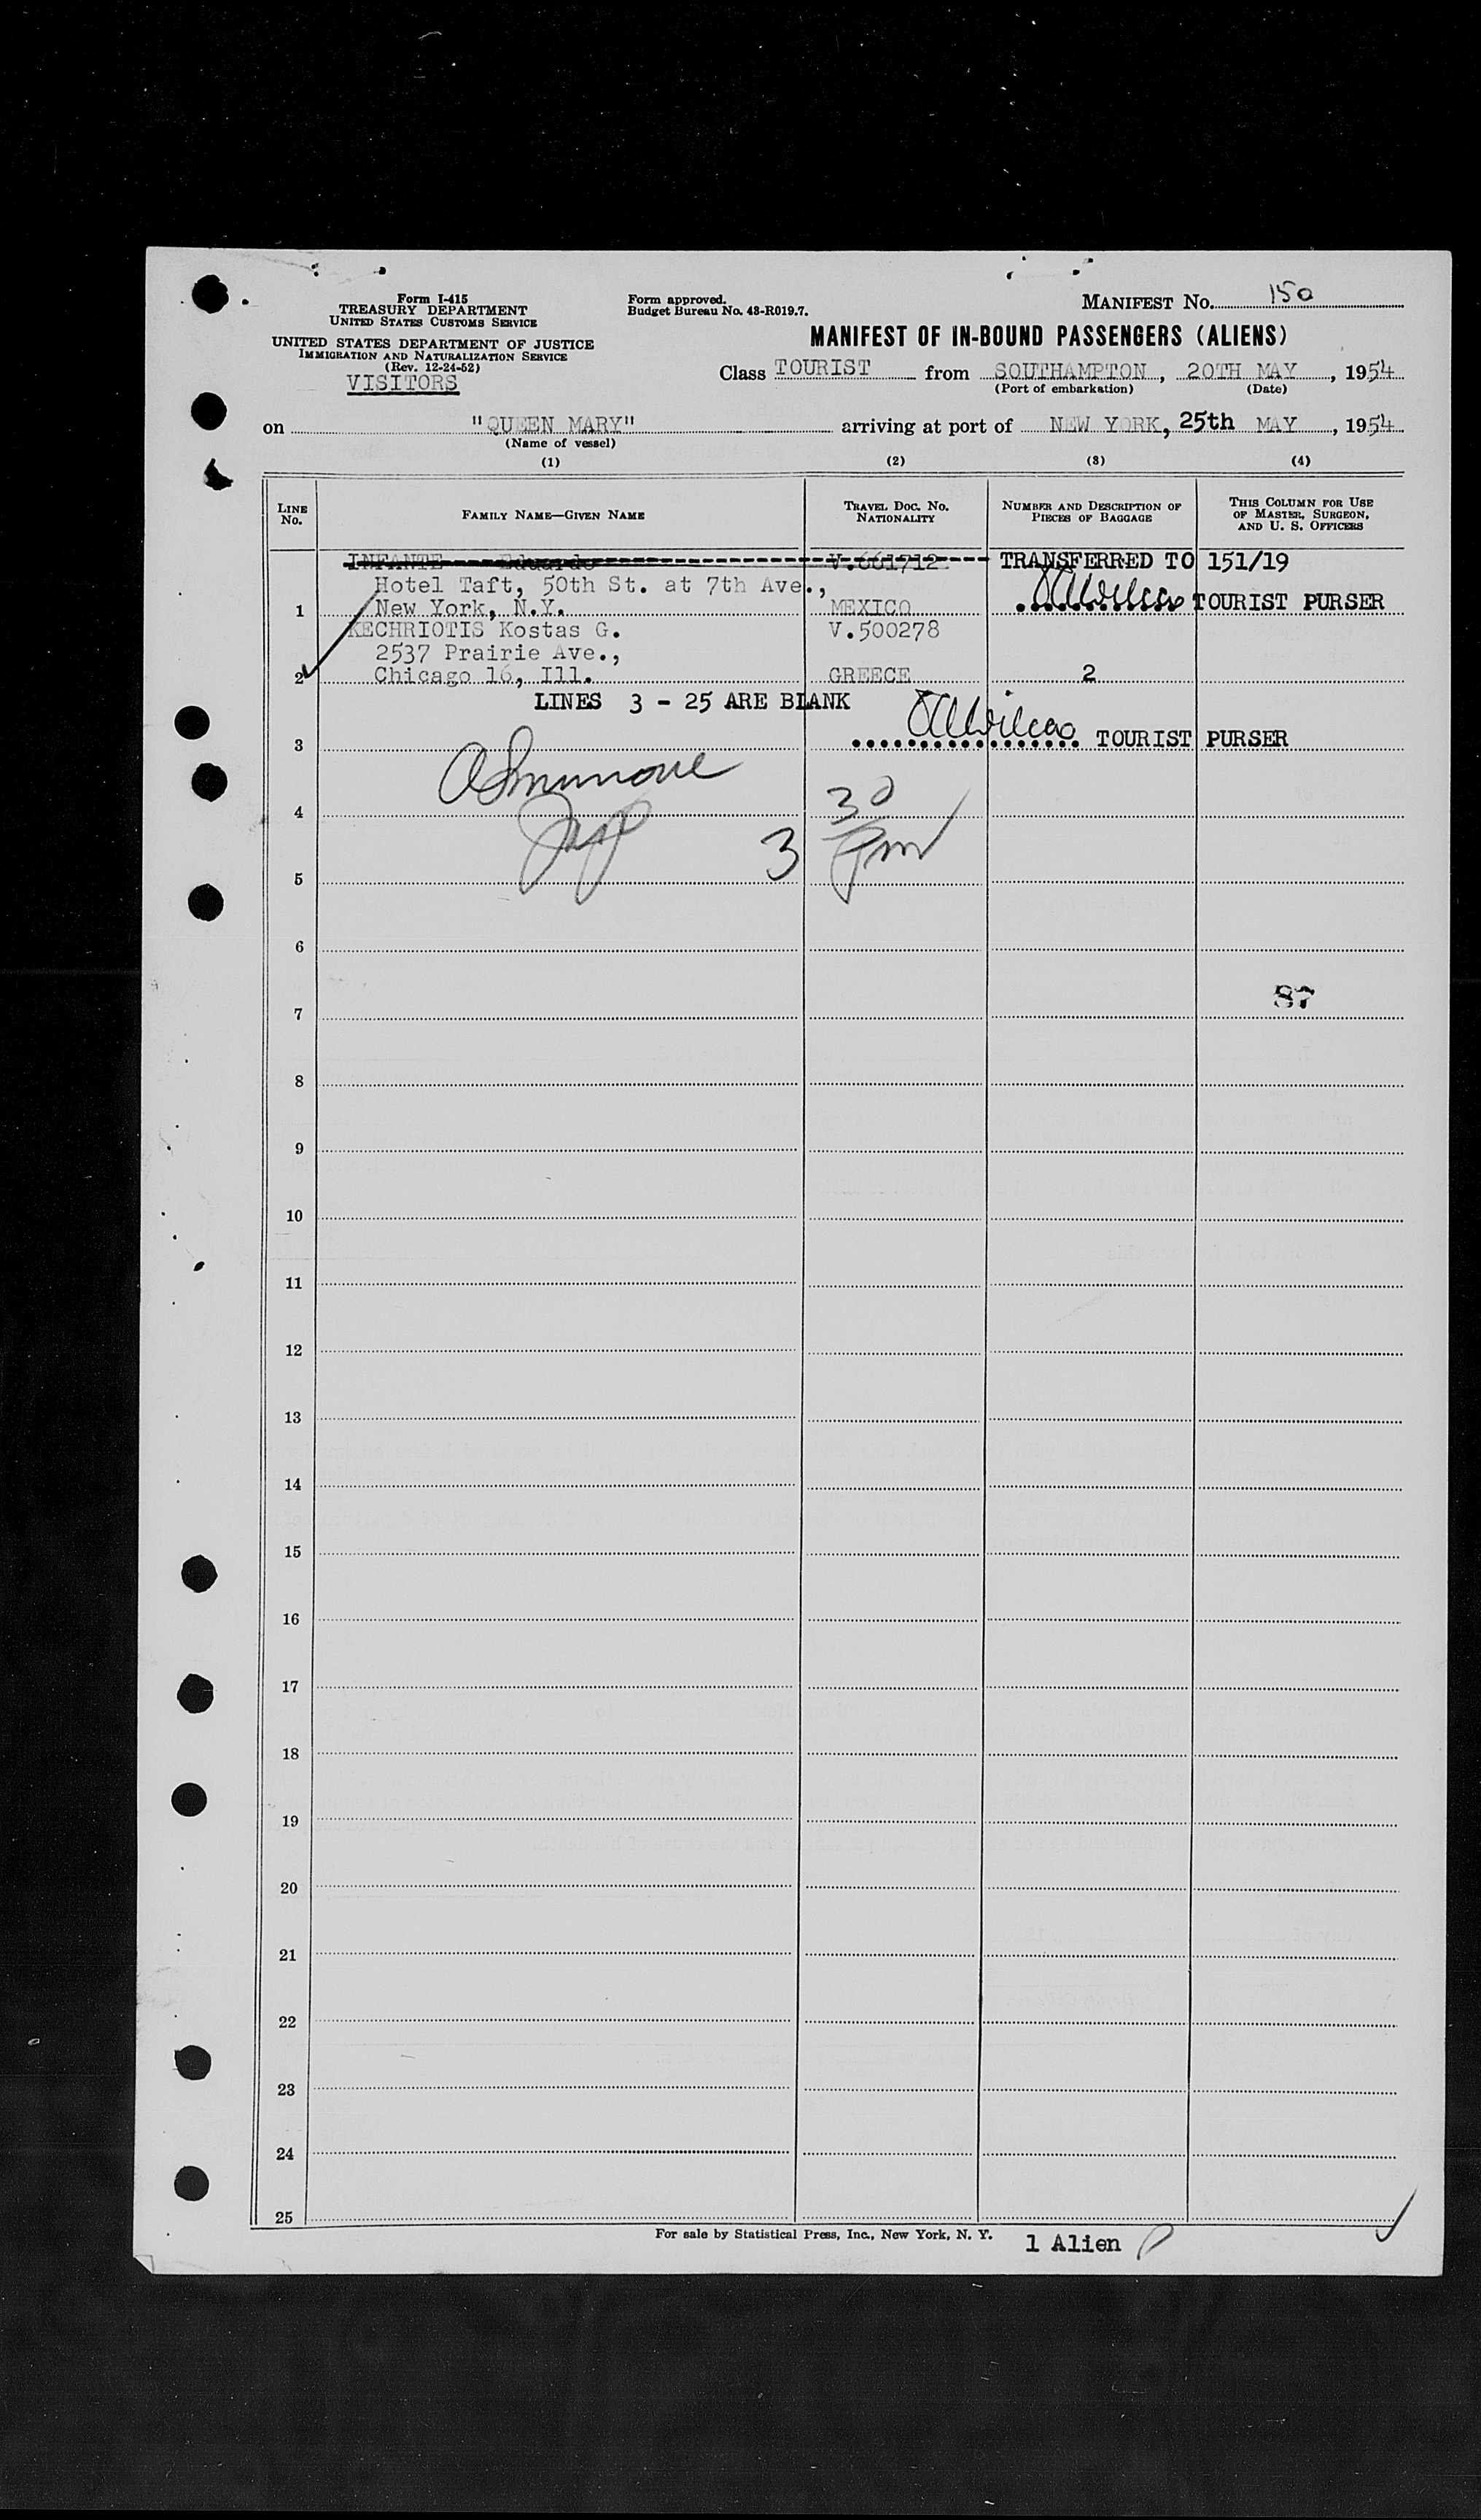 Form I-415
TREASURY DEPARTMENT
UNITED STATES CUSTOMS SERVICE
UNITED STATES DEPARTMENT OF JUSTICE
IMMIGRATION AND NATURALIZATION SERVICE
(Rev. 12-24-52)
VISITORS
Form approved.
Budget Bureau No. 43-R019.7.
MANIFEST NO. 150
MANIFEST OF IN-BOUND PASSENGERS (ALIENS)
Class TOURIST from SOUTHAMPTON, 20TH MAY, 1954
(Port of embarkation) (Date)
on "QUEEN MARY" arriving at port of NEW YORK, 25th MAY, 1954
(Name of vessel)
(1) (2) (3) (4)
LINE No. FAMILY NAME—GIVEN NAME TRAVEL DOC. NO. NATIONALITY NUMBER AND DESCRIPTION OF PIECES OF BAGGAGE THIS COLUMN FOR USE OF MASTER, SURGEON, AND U. S. OFFICERS
INFANTE Eduardo V.661712 TRANSFERRED TO 151/19
Hotel Taft, 50th St. at 7th Ave.,
1 New York, N.Y. MEXICO TOURIST PURSER
KECHRIOTIS Kostas G. V.500278
2537 Prairie Ave.,
2 Chicago 16, Ill. GREECE 2
LINES 3 - 25 ARE BLANK
3 TOURIST PURSER
4
5 3 30 pm
6
7 87
8
9
10
11
12
13
14
15
16
17
18
19
20
21
22
23
24
25
For sale by Statistical Press, Inc., New York, N. Y.
1 Alien